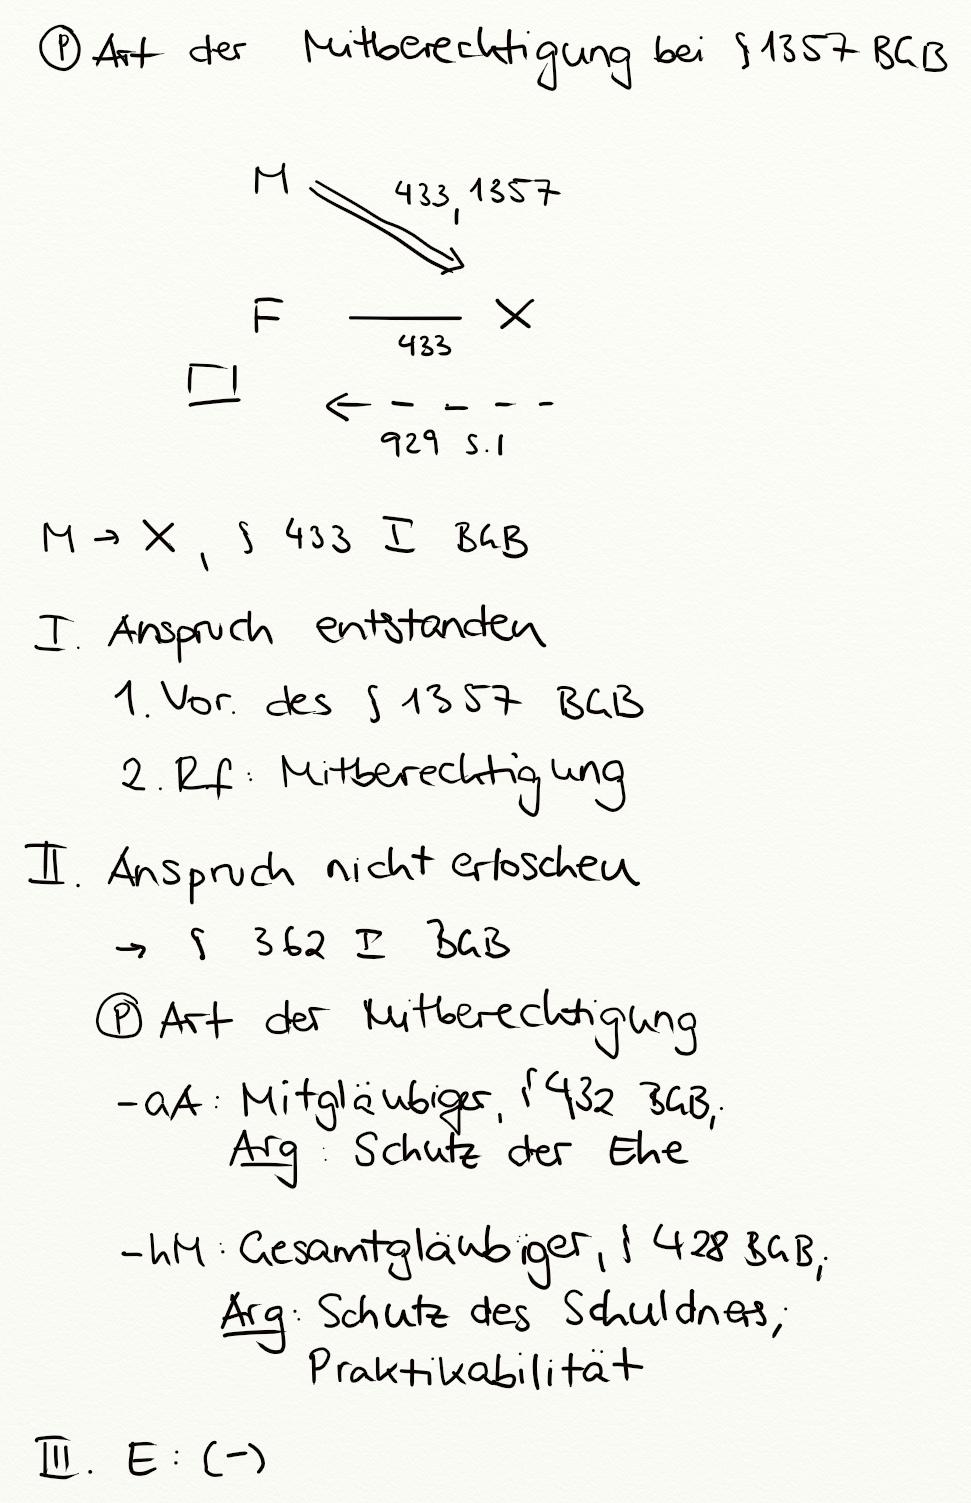 Ⓟ Art der Mitberechtigung bei § 1357 BGB
M
433, 1357
F
X
433
929 S.1
M → X, § 433 I BGB
I. Anspruch entstanden
1. Vor. des § 1357 BGB
2. Rf: Mitberechtigung
II. Anspruch nicht erloschen
→ § 362 I BGB
Ⓟ Art der Mitberechtigung
- aA: Mitgläubiger, § 432 BGB;
Arg: Schutz der Ehe
- hM: Gesamtgläubiger, § 428 BGB;
Arg: Schutz des Schuldners;
Praktikabilität
III. E: (-)